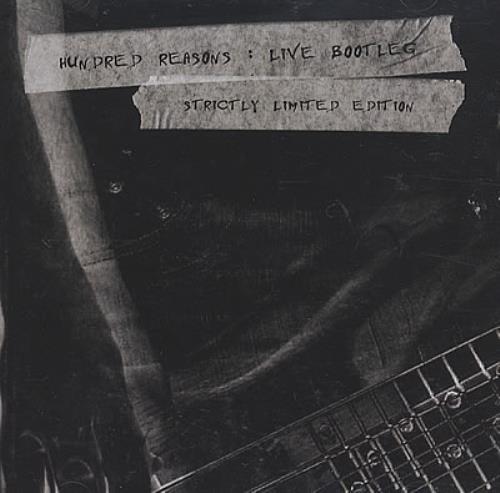 HUNDRED REASONS : LIVE BOOTLEG
STRICTLY LIMITED EDITION